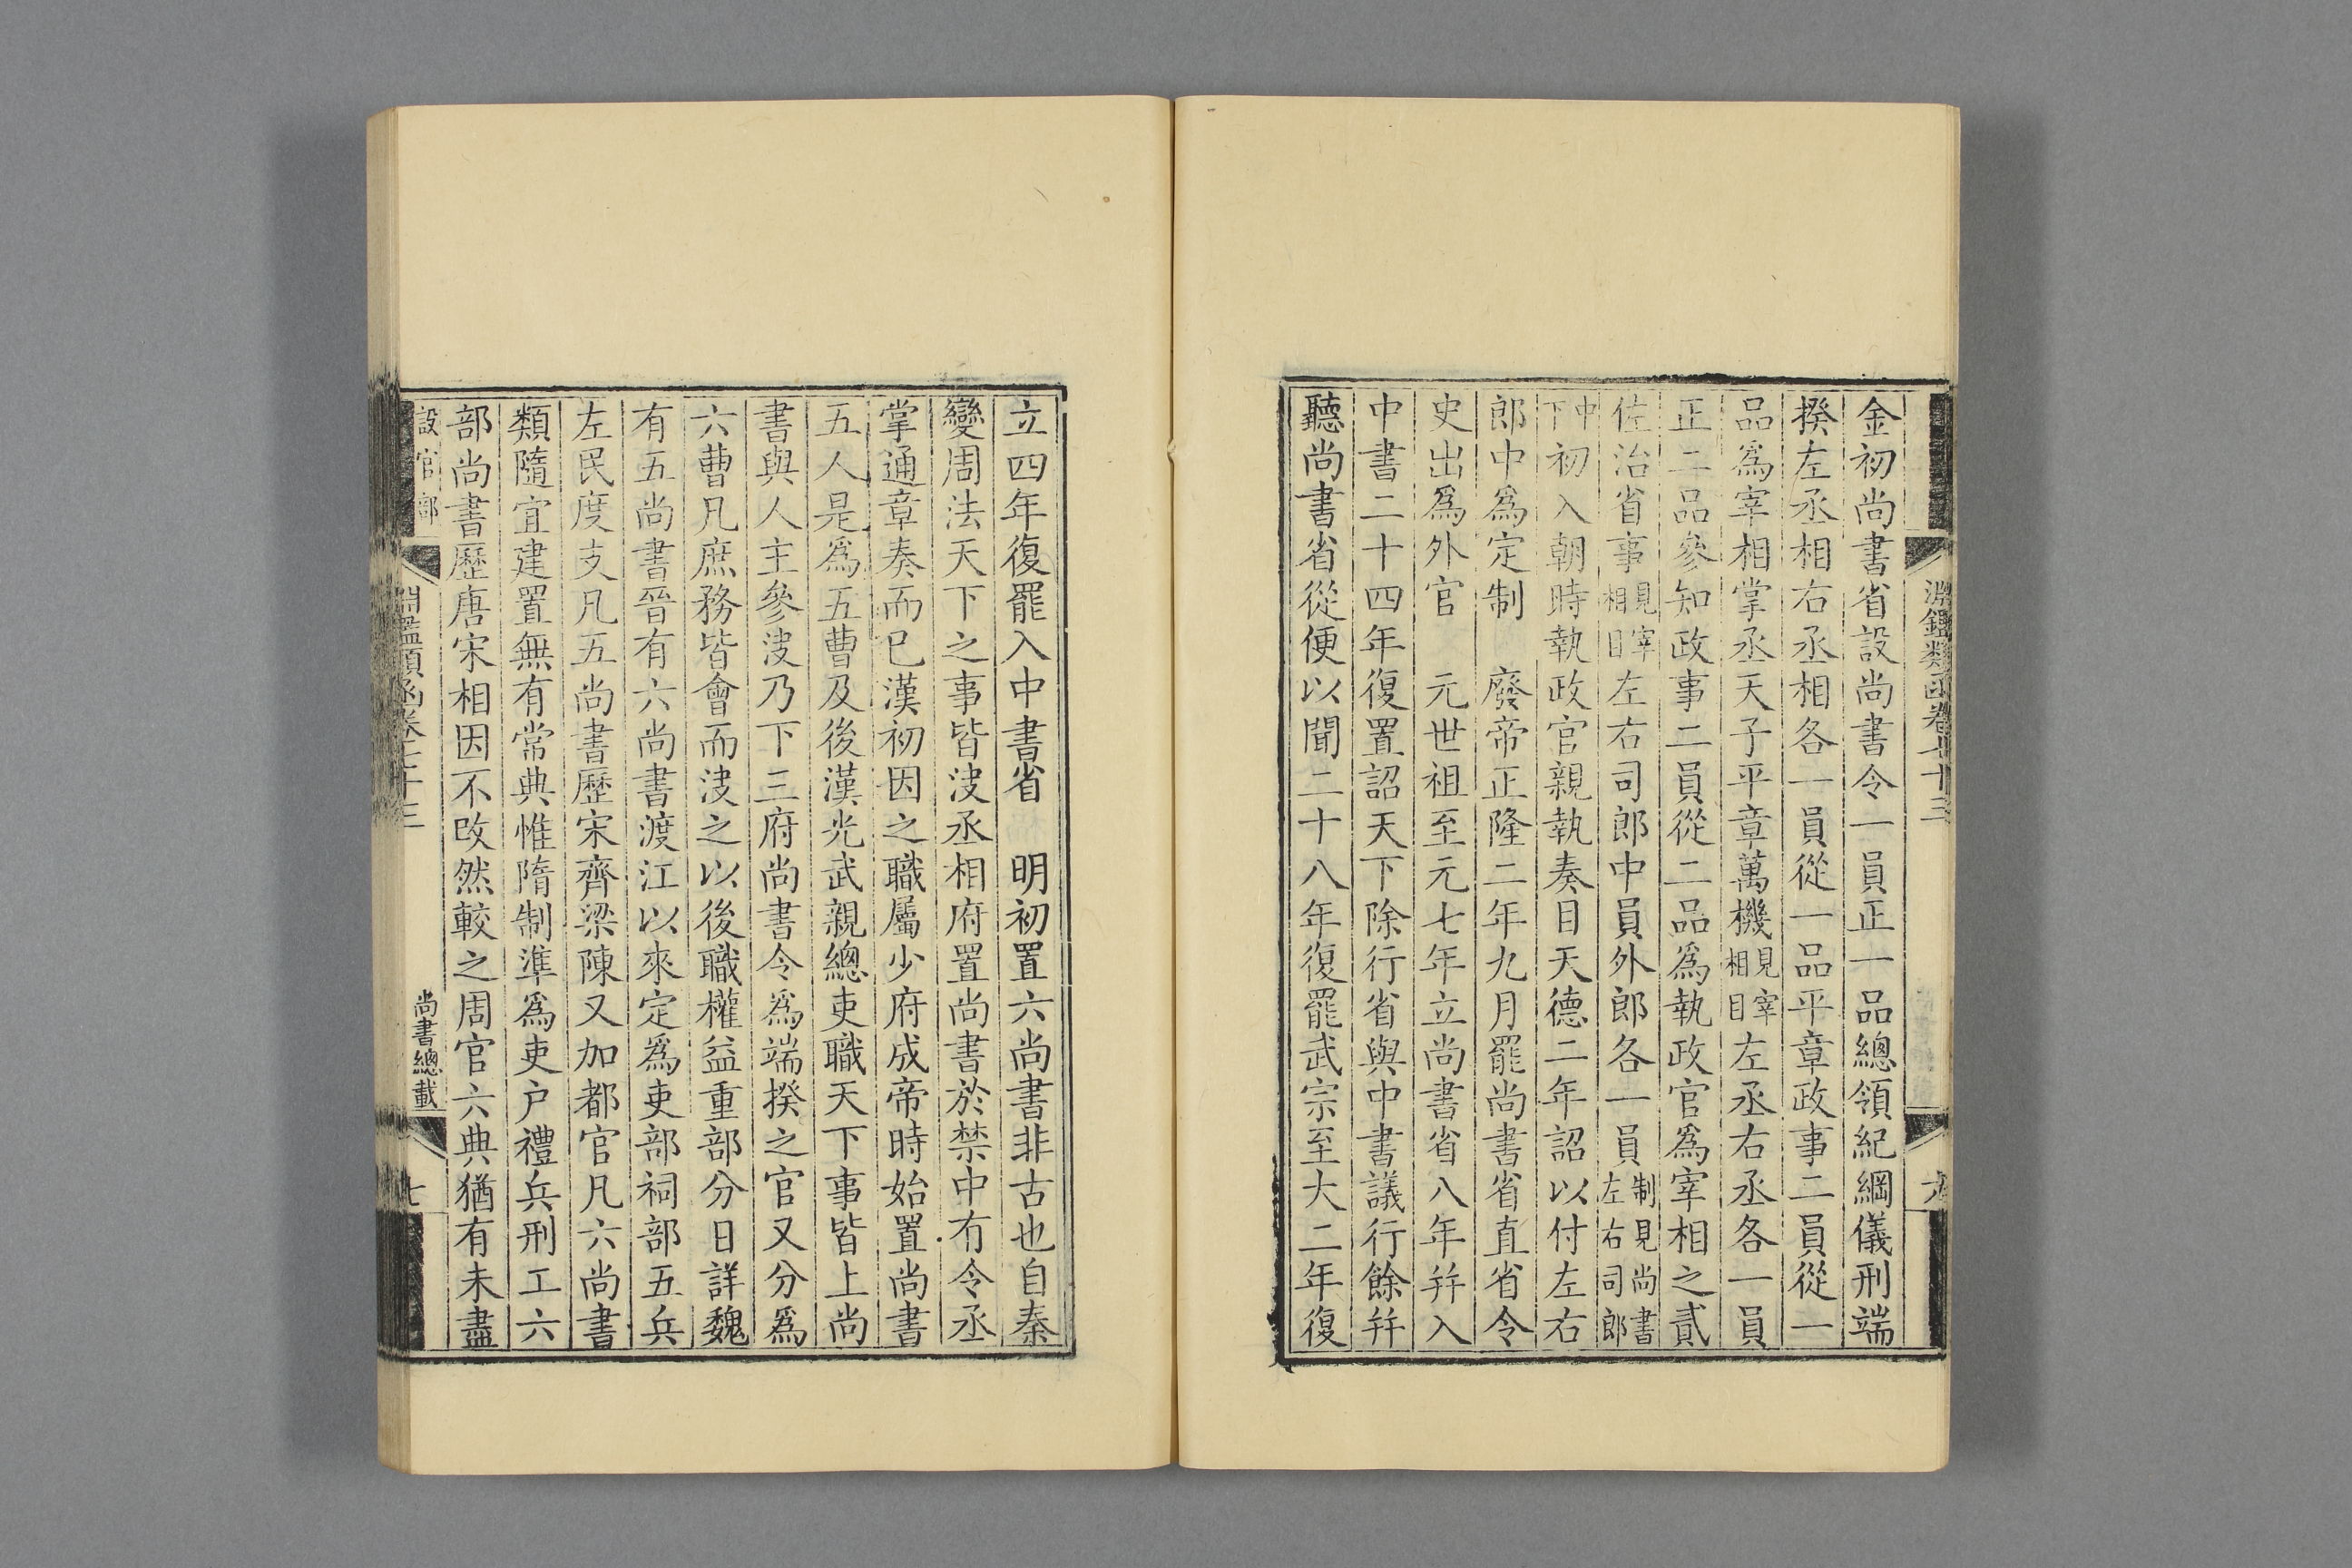 淵鑑類函卷七十三
金初尚書省設尚書令一員正一品總領紀綱儀刑端
揆左丞相右丞相各一員從一品平章政事二員從一
品爲宰相掌丞天子平章萬機見宰相目左丞右丞各一員
正二品參知政事二員從二品爲執政官爲宰相之貳
佐治省事見宰相目左右司郎中員外郎各一員制見尚書左右司郎
中下初入朝時執政官親執奏目天德二年詔以付左右
郎中爲定制　廢帝正隆二年九月罷尚書省直省令
史出爲外官　元世祖至元七年立尚書省八年并入
中書二十四年復置詔天下除行省與中書議行餘并
聽尚書省從便以聞二十八年復罷武宗至大二年復
立四年復罷入中書省　明初置六尚書非古也自秦
變周法天下之事皆決丞相府置尚書於禁中有令丞
掌通章奏而已漢初因之職屬少府成帝時始置尚書
五人是爲五曹及後漢光武親總吏職天下事皆上尚
書與人主參決乃下三府尚書令爲端揆之官又分爲
六曹凡庶務皆會而決之以後職權益重部分日詳魏
有五尚書晉有六尚書渡江以來定爲吏部祠部五兵
左民度支凡五尚書歷宋齊梁陳又加都官凡六尚書
類隨宜建置無有常典惟隋制準爲吏户禮兵刑工六
部尚書歷唐宋相因不改然較之周官六典猶有未盡
設官部
淵鑑類函卷七十三
尚書總載
七